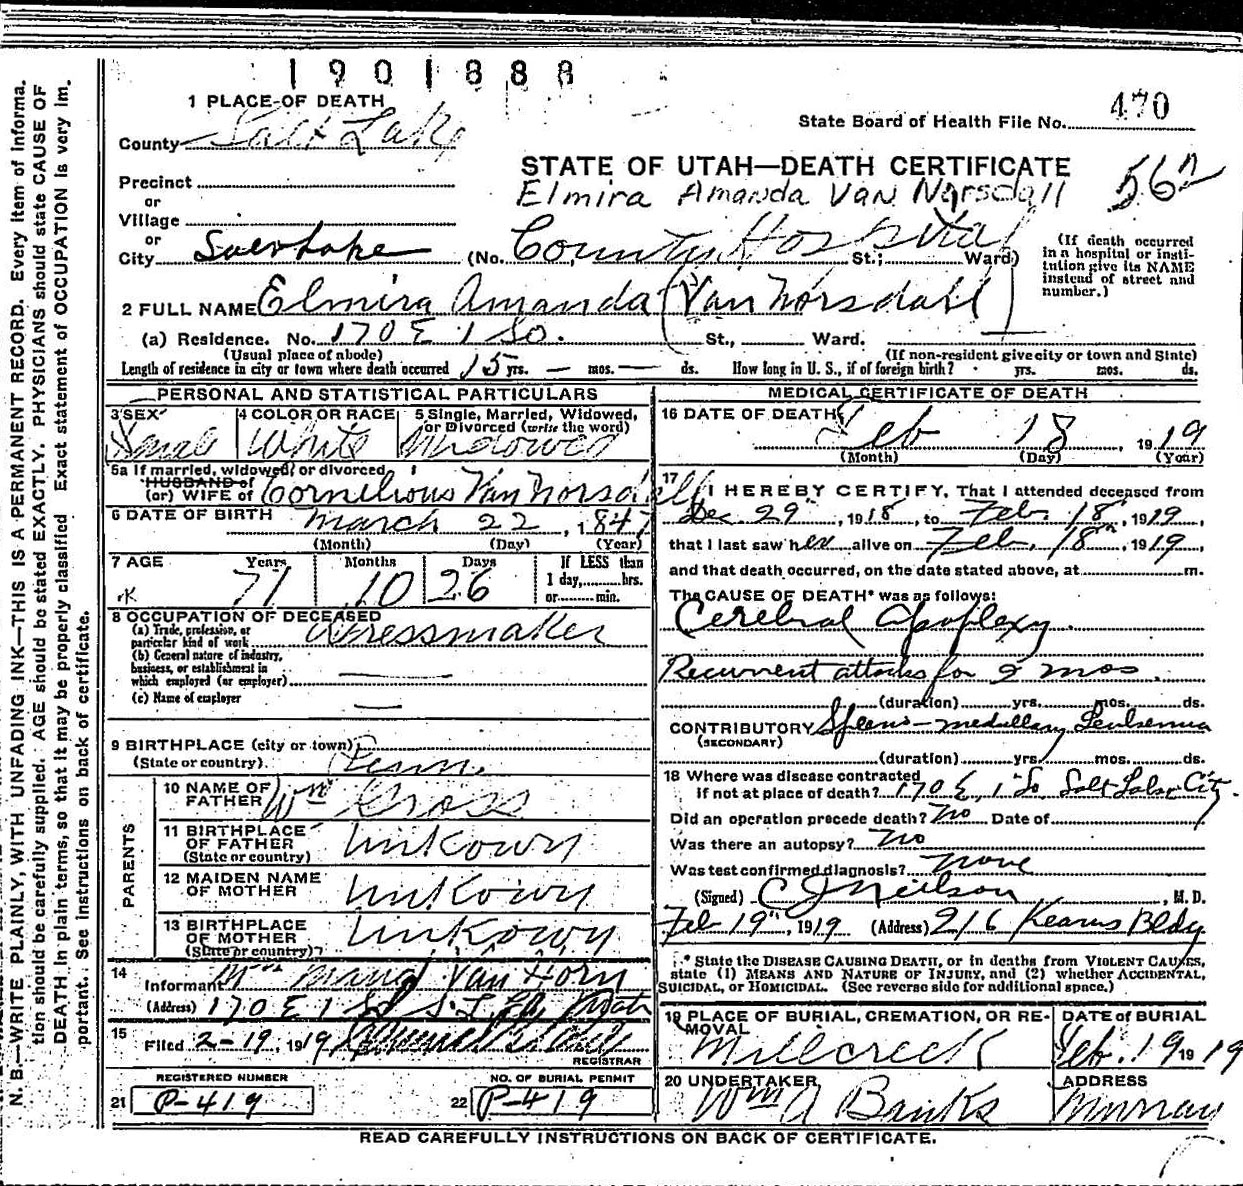 1901888
1 PLACE OF DEATH
470
State Board of Health File No.
County Salt Lake
STATE OF UTAH—DEATH CERTIFICATE
Precinct
Elmira Amanda Van Norsdall
or
Village
or
City Salt Lake (No. County Hospital St.; Ward)
(If death occurred in a hospital or institution give its NAME instead of street and number.)
2 FULL NAME Elmira Amanda (Van Norsdahl)
(a) Residence. No. 170 E 1 So. St., Ward.
(Usual place of abode) (If non-resident give city or town and State)
Length of residence in city or town where death occurred 15 yrs. — mos. — ds. How long in U. S., if of foreign birth? yrs. mos. ds.
PERSONAL AND STATISTICAL PARTICULARS
3 SEX 4 COLOR OR RACE 5 Single, Married, Widowed, or Divorced (write the word)
Female White Widowed
5a If married, widowed, or divorced
HUSBAND of
(or) WIFE of Cornelious Van Norsdall
6 DATE OF BIRTH March 22, 1847
(Month) (Day) (Year)
7 AGE Years Months Days If LESS than
71 10 26 1 day, hrs.
or min.
8 OCCUPATION OF DECEASED
(a) Trade, profession, or particular kind of work Dressmaker
(b) General nature of industry, business, or establishment in which employed (or employer) —
(c) Name of employer —
9 BIRTHPLACE (city or town)
(State or country). Penn.
PARENTS
10 NAME OF FATHER Wm Gross
11 BIRTHPLACE OF FATHER (State or country) Unkown
12 MAIDEN NAME OF MOTHER Unkown
13 BIRTHPLACE OF MOTHER (State or country) Unkown
14 Informant Mrs Maud Van Horn
(Address) 170 E 1 So S. L. City Utah
15 Filed 2-19, 1919
REGISTRAR
REGISTERED NUMBER NO. OF BURIAL PERMIT
21 P-419 22 P-419
MEDICAL CERTIFICATE OF DEATH
16 DATE OF DEATH
Feb 18, 1919
(Month) (Day) (Year)
17 I HEREBY CERTIFY, That I attended deceased from
Dec 29", 1918, to Feb. 18", 1919,
that I last saw her alive on Feb. 18", 1919,
and that death occurred, on the date stated above, at m.
The CAUSE OF DEATH* was as follows:
Cerebral Apoplexy
Recurrent attacks for 2 mos.
(duration) yrs. mos. ds.
CONTRIBUTORY Spleno-medullary Leukemia
(SECONDARY)
(duration) yrs. mos. ds.
18 Where was disease contracted
If not at place of death? 170 E, 1 So Salt Lake City
Did an operation precede death? No Date of
Was there an autopsy? No
Was test confirmed diagnosis? None
(Signed) C J Neilson, M. D.
Feb 19", 1919 (Address) 216 Kearns Bldg
* State the DISEASE CAUSING DEATH, or in deaths from VIOLENT CAUSES,
state (1) MEANS AND NATURE OF INJURY, and (2) whether ACCIDENTAL,
SUICIDAL, or HOMICIDAL. (See reverse side for additional space.)
19 PLACE OF BURIAL, CREMATION, OR REMOVAL DATE OF BURIAL
Millcreek Feb. 19 1919
20 UNDERTAKER ADDRESS
Wm A Banks Murray
READ CAREFULLY INSTRUCTIONS ON BACK OF CERTIFICATE.
N. B.—WRITE PLAINLY, WITH UNFADING INK—THIS IS A PERMANENT RECORD. Every item of informa-
tion should be carefully supplied. AGE should be stated EXACTLY. PHYSICIANS should state CAUSE OF
DEATH in plain terms, so that it may be properly classified. Exact statement of OCCUPATION is very im-
portant. See instructions on back of certificate.